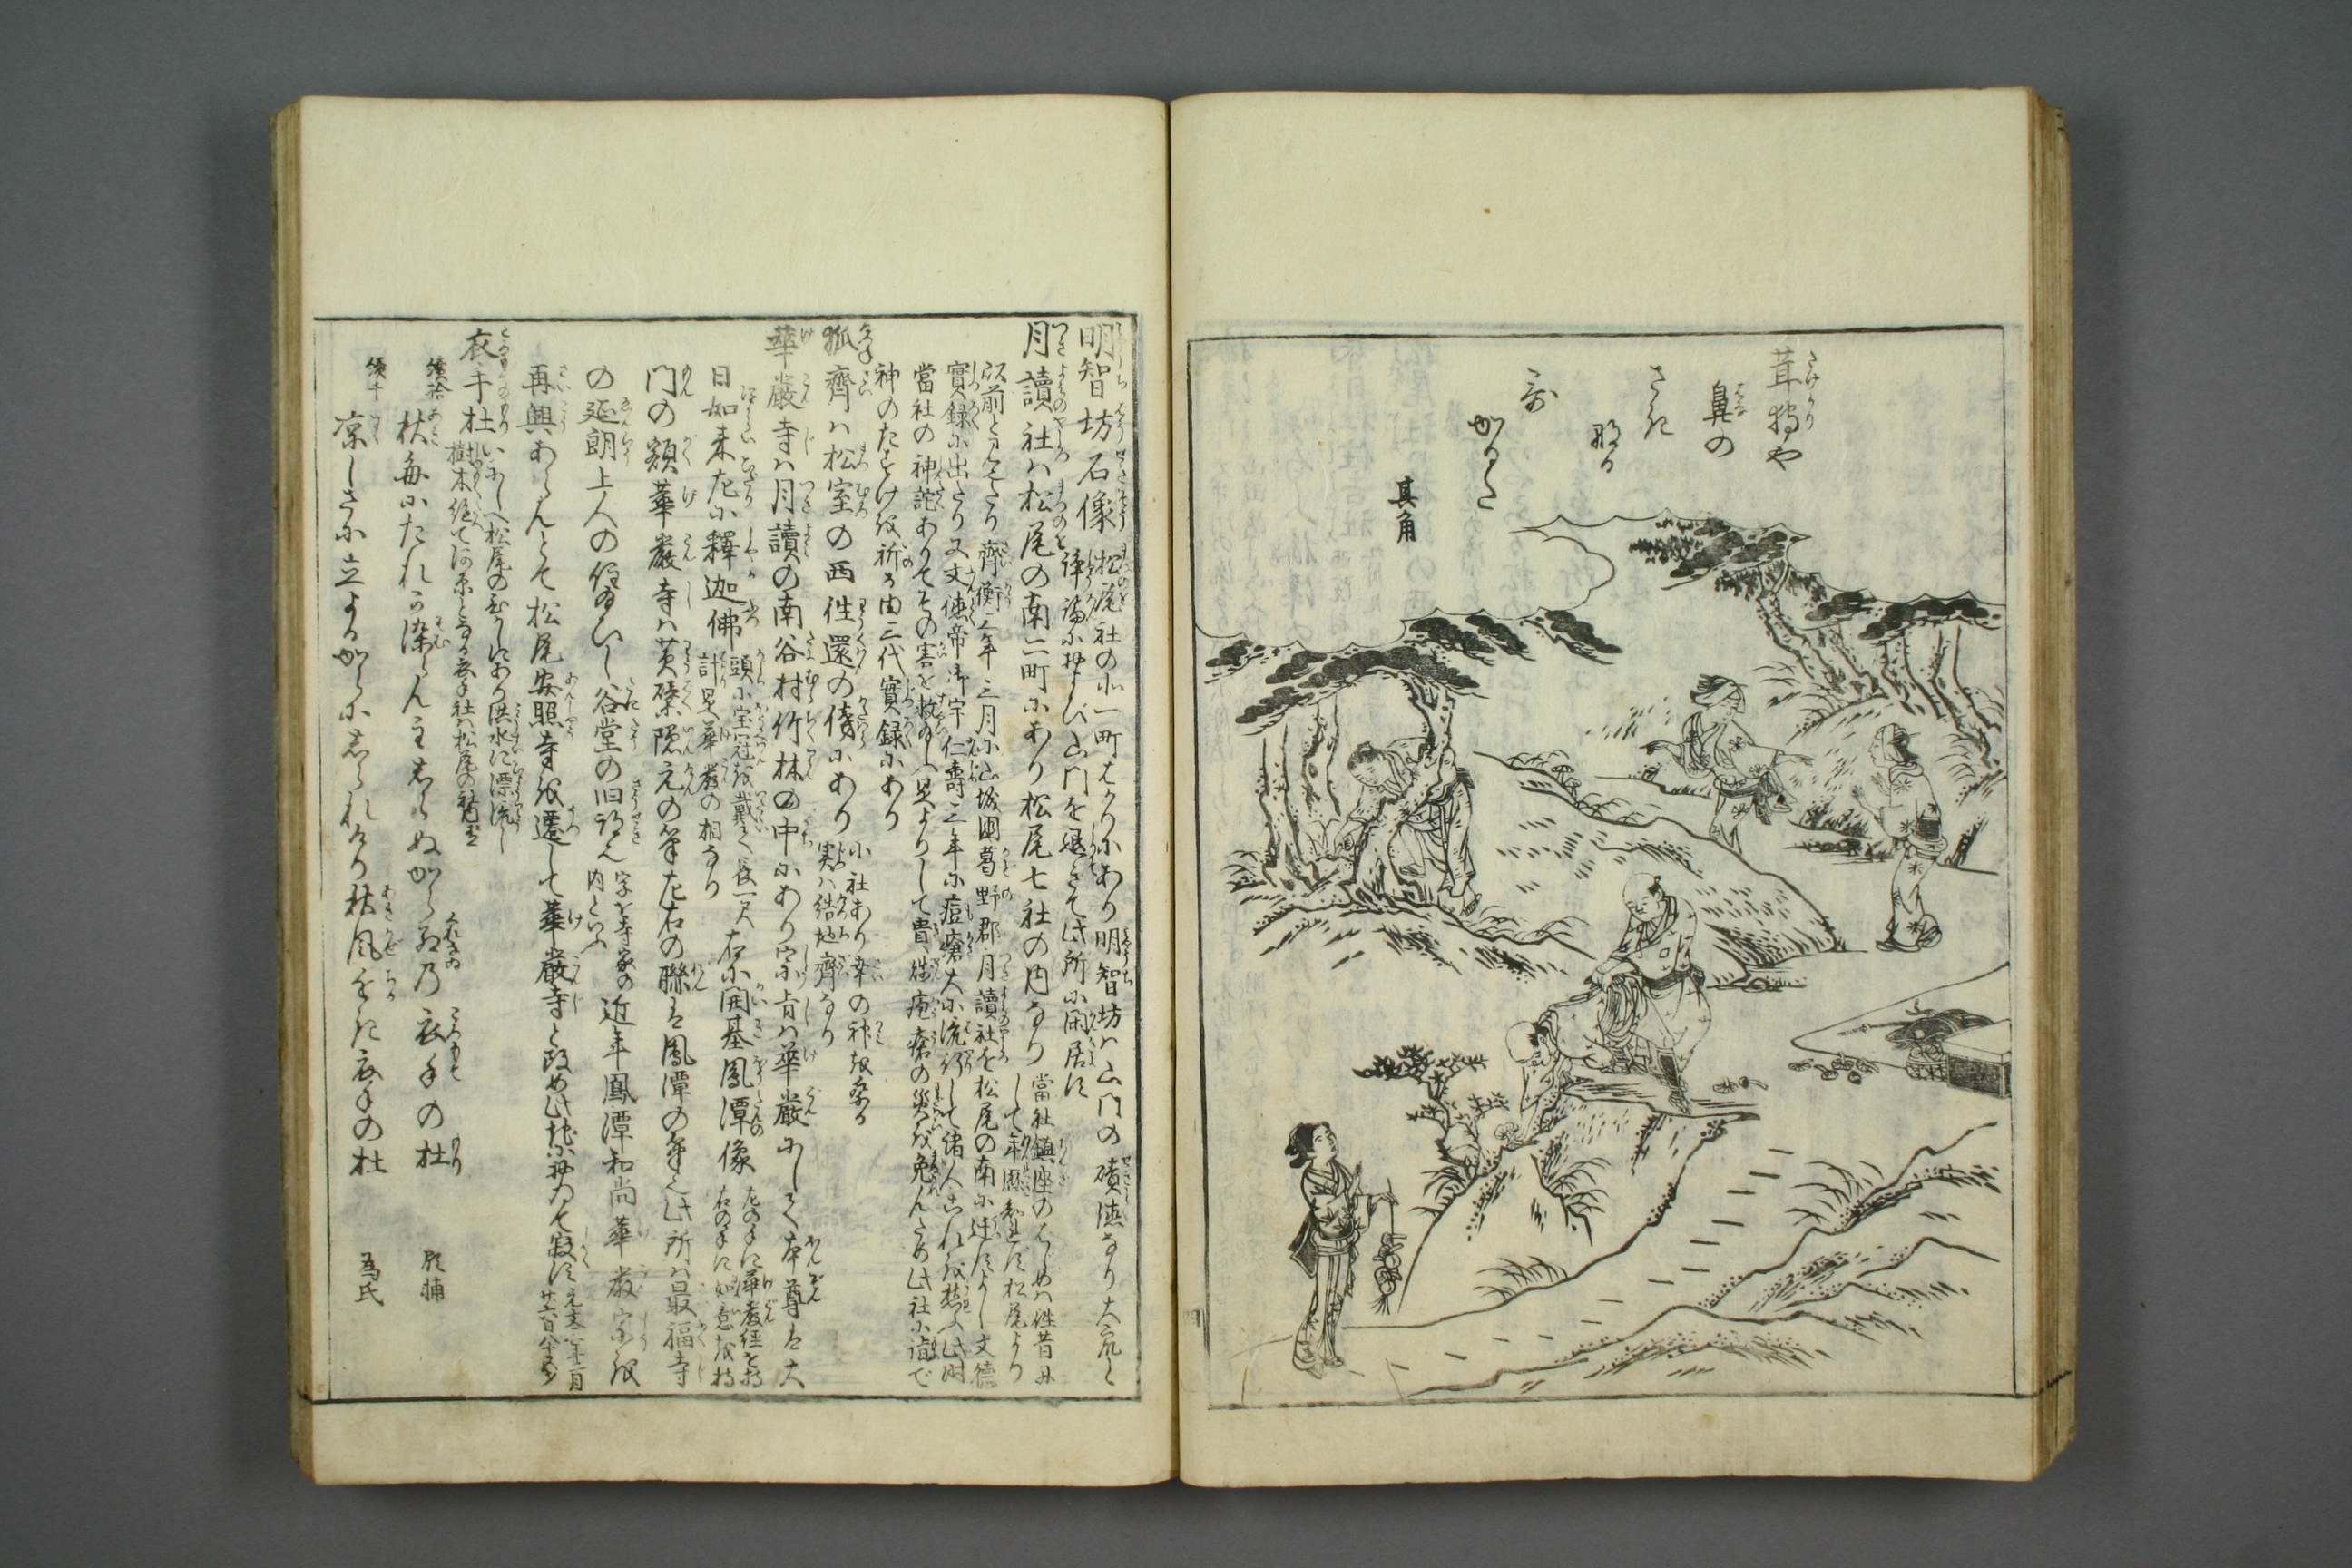 茸狩や
鼻の
さきなる
哥がるた
其角
明智坊石像 松尾社の北一町ばかりにあり明智坊は山門の碩徳なり大衆と
諍論に及び山門を退きて此所に閑居す
月讀社は松尾の南二町にあり松尾七社の内なり 當社鎮座のはじめは往昔
以前と見えたり齊衡三年三月に山城国葛野郡月讀社を松尾の南に遷すよし文徳
實録に出たり又文徳帝御宇仁壽三年に痘瘡大に流行して諸人これを愁ふ此時
當社の神詫ありてその害を救給ふ是よりして貴賤疱瘡の災を免んため此社に詣で
神のたすけを祈る由三代實録にあり
狐齊は松室の西往還の傍にあり 小社あり幸の神を祭る
実は結地齊なり
華嚴寺は月讀の南谷村竹林の中にあり宗旨は華嚴にして本尊は大
日如来左に釋迦佛 頭に宝冠を戴く長一尺
計是華嚴の相なり 右に開基鳳潭像 左の手に華嚴経を持
右の手に如意を持
門の額華嚴寺は黄檗隠元の筆左右の聯は鳳潭の筆也此所は最福寺
の延朗上人の住給ひし谷堂の旧跡也 字を寺家の
内といふ 近年鳳潭和尚華嚴宗を
再興あらんとて松尾安照寺を遷して華嚴寺と改め此地に於て寂す
衣手杜 いにしへ松尾の
洪水に漂流し
樹木絶て河原となる衣手社は松尾の
續拾 秋毎にたれか染らん主しらぬからくれなゐの衣手の杜
續千 涼しさに立よるからにしられけり秋風ちかき衣手の杜 為氏